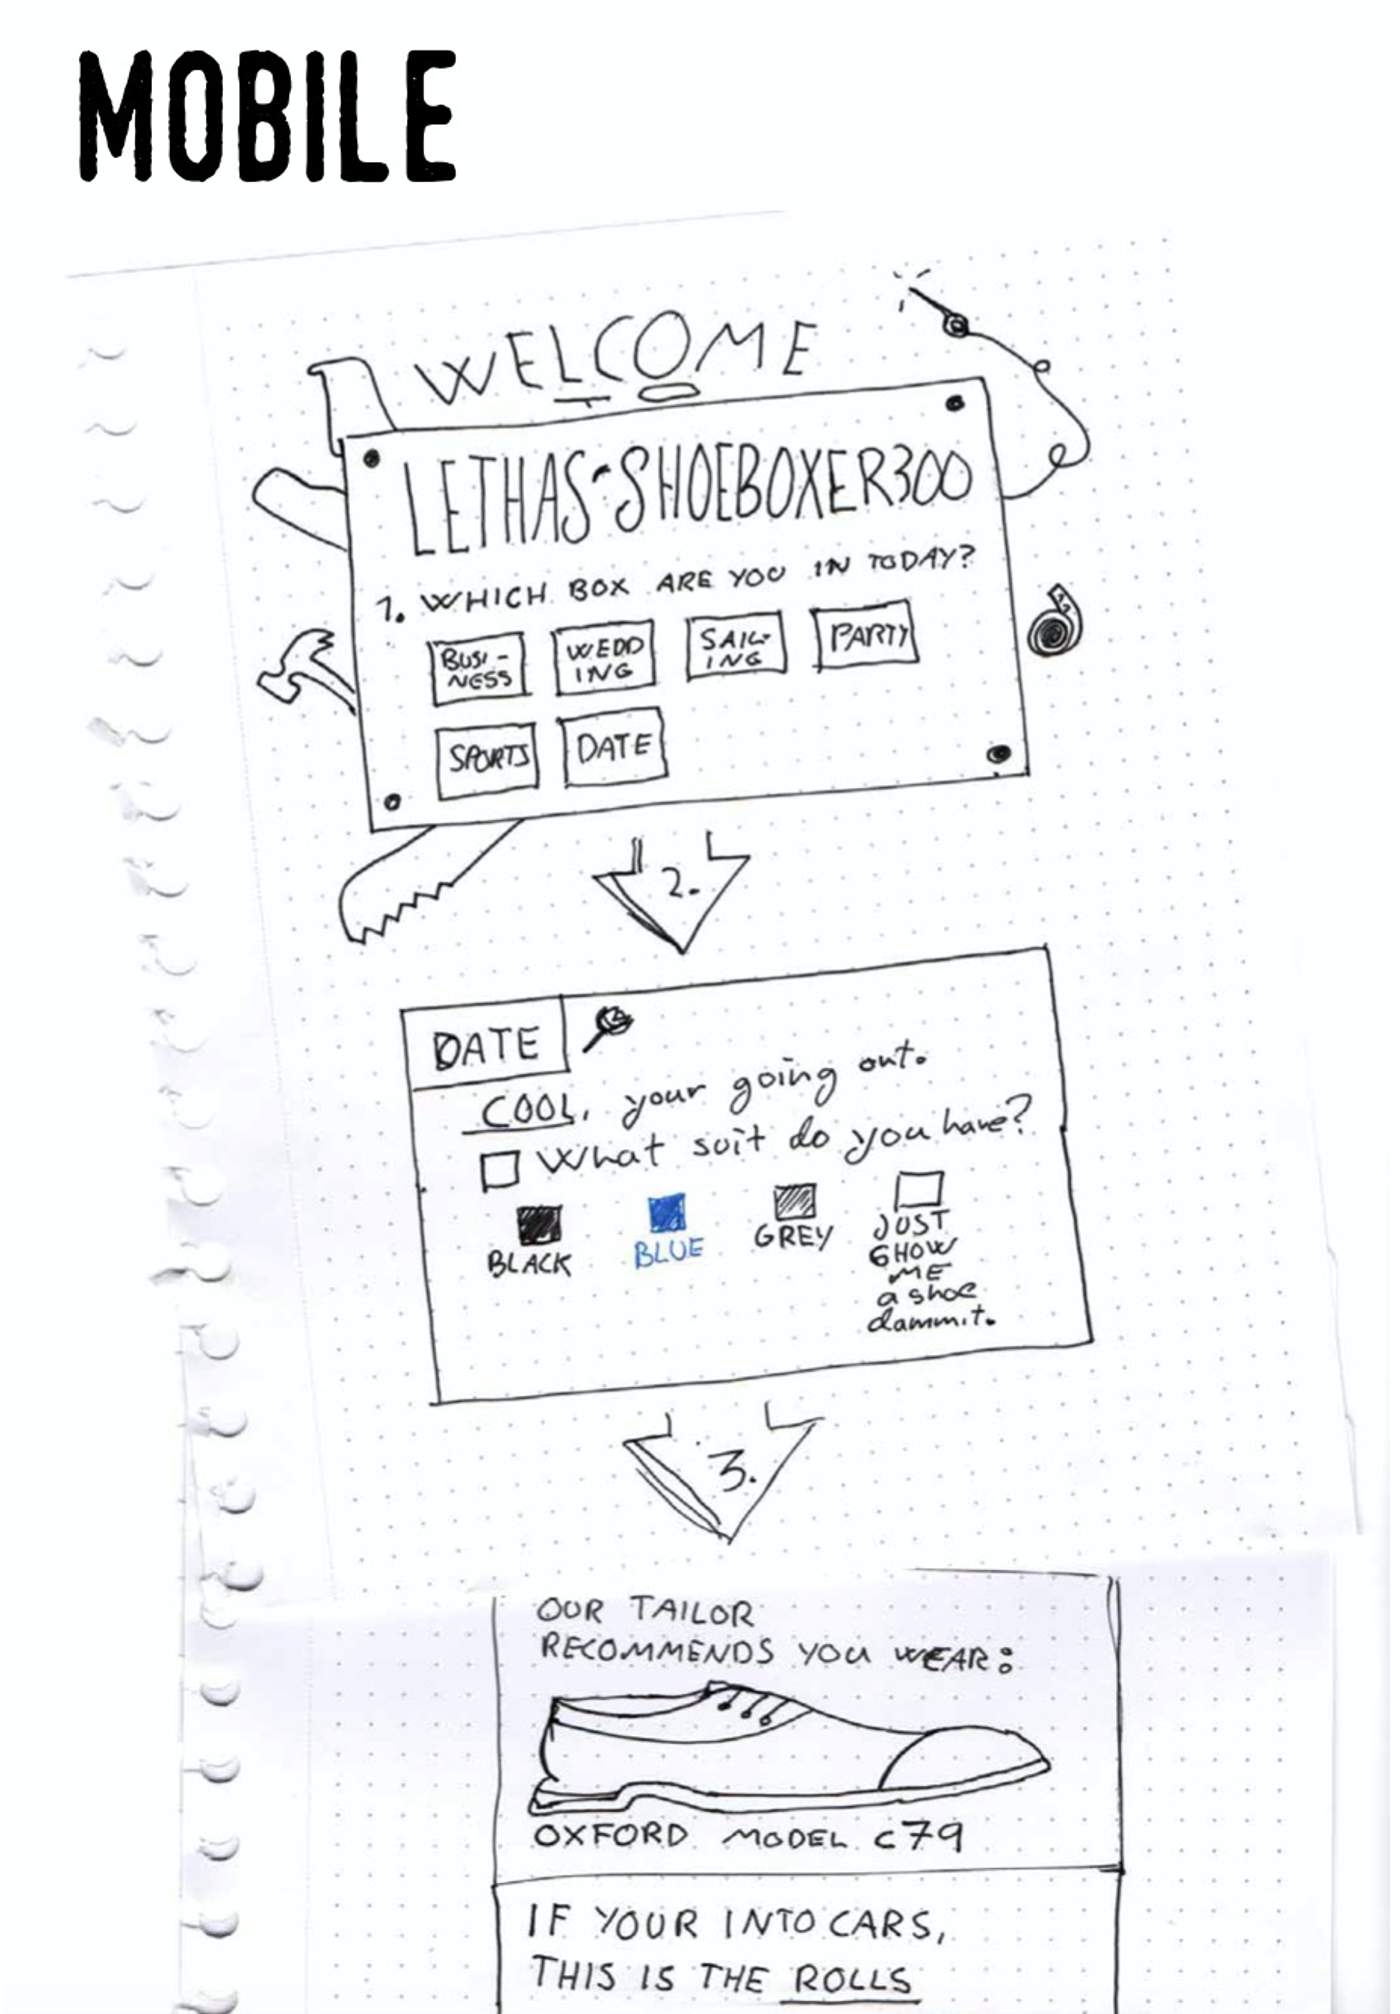 MOBILE
WELCOME
LETHAS-SHOEBOXER300
1. WHICH BOX ARE YOU IN TODAY?
BUSI-
NESS
WEDD
ING
SAIL-
ING
PARTY
SPORTS
DATE
2.
DATE
COOL, your going out.
What suit do you have?
BLACK
BLUE
GREY
JUST
SHOW
ME
a shoe
dammit.
3.
OUR TAILOR
RECOMMENDS YOU WEAR:
OXFORD MODEL C79
IF YOUR INTO CARS,
THIS IS THE ROLLS